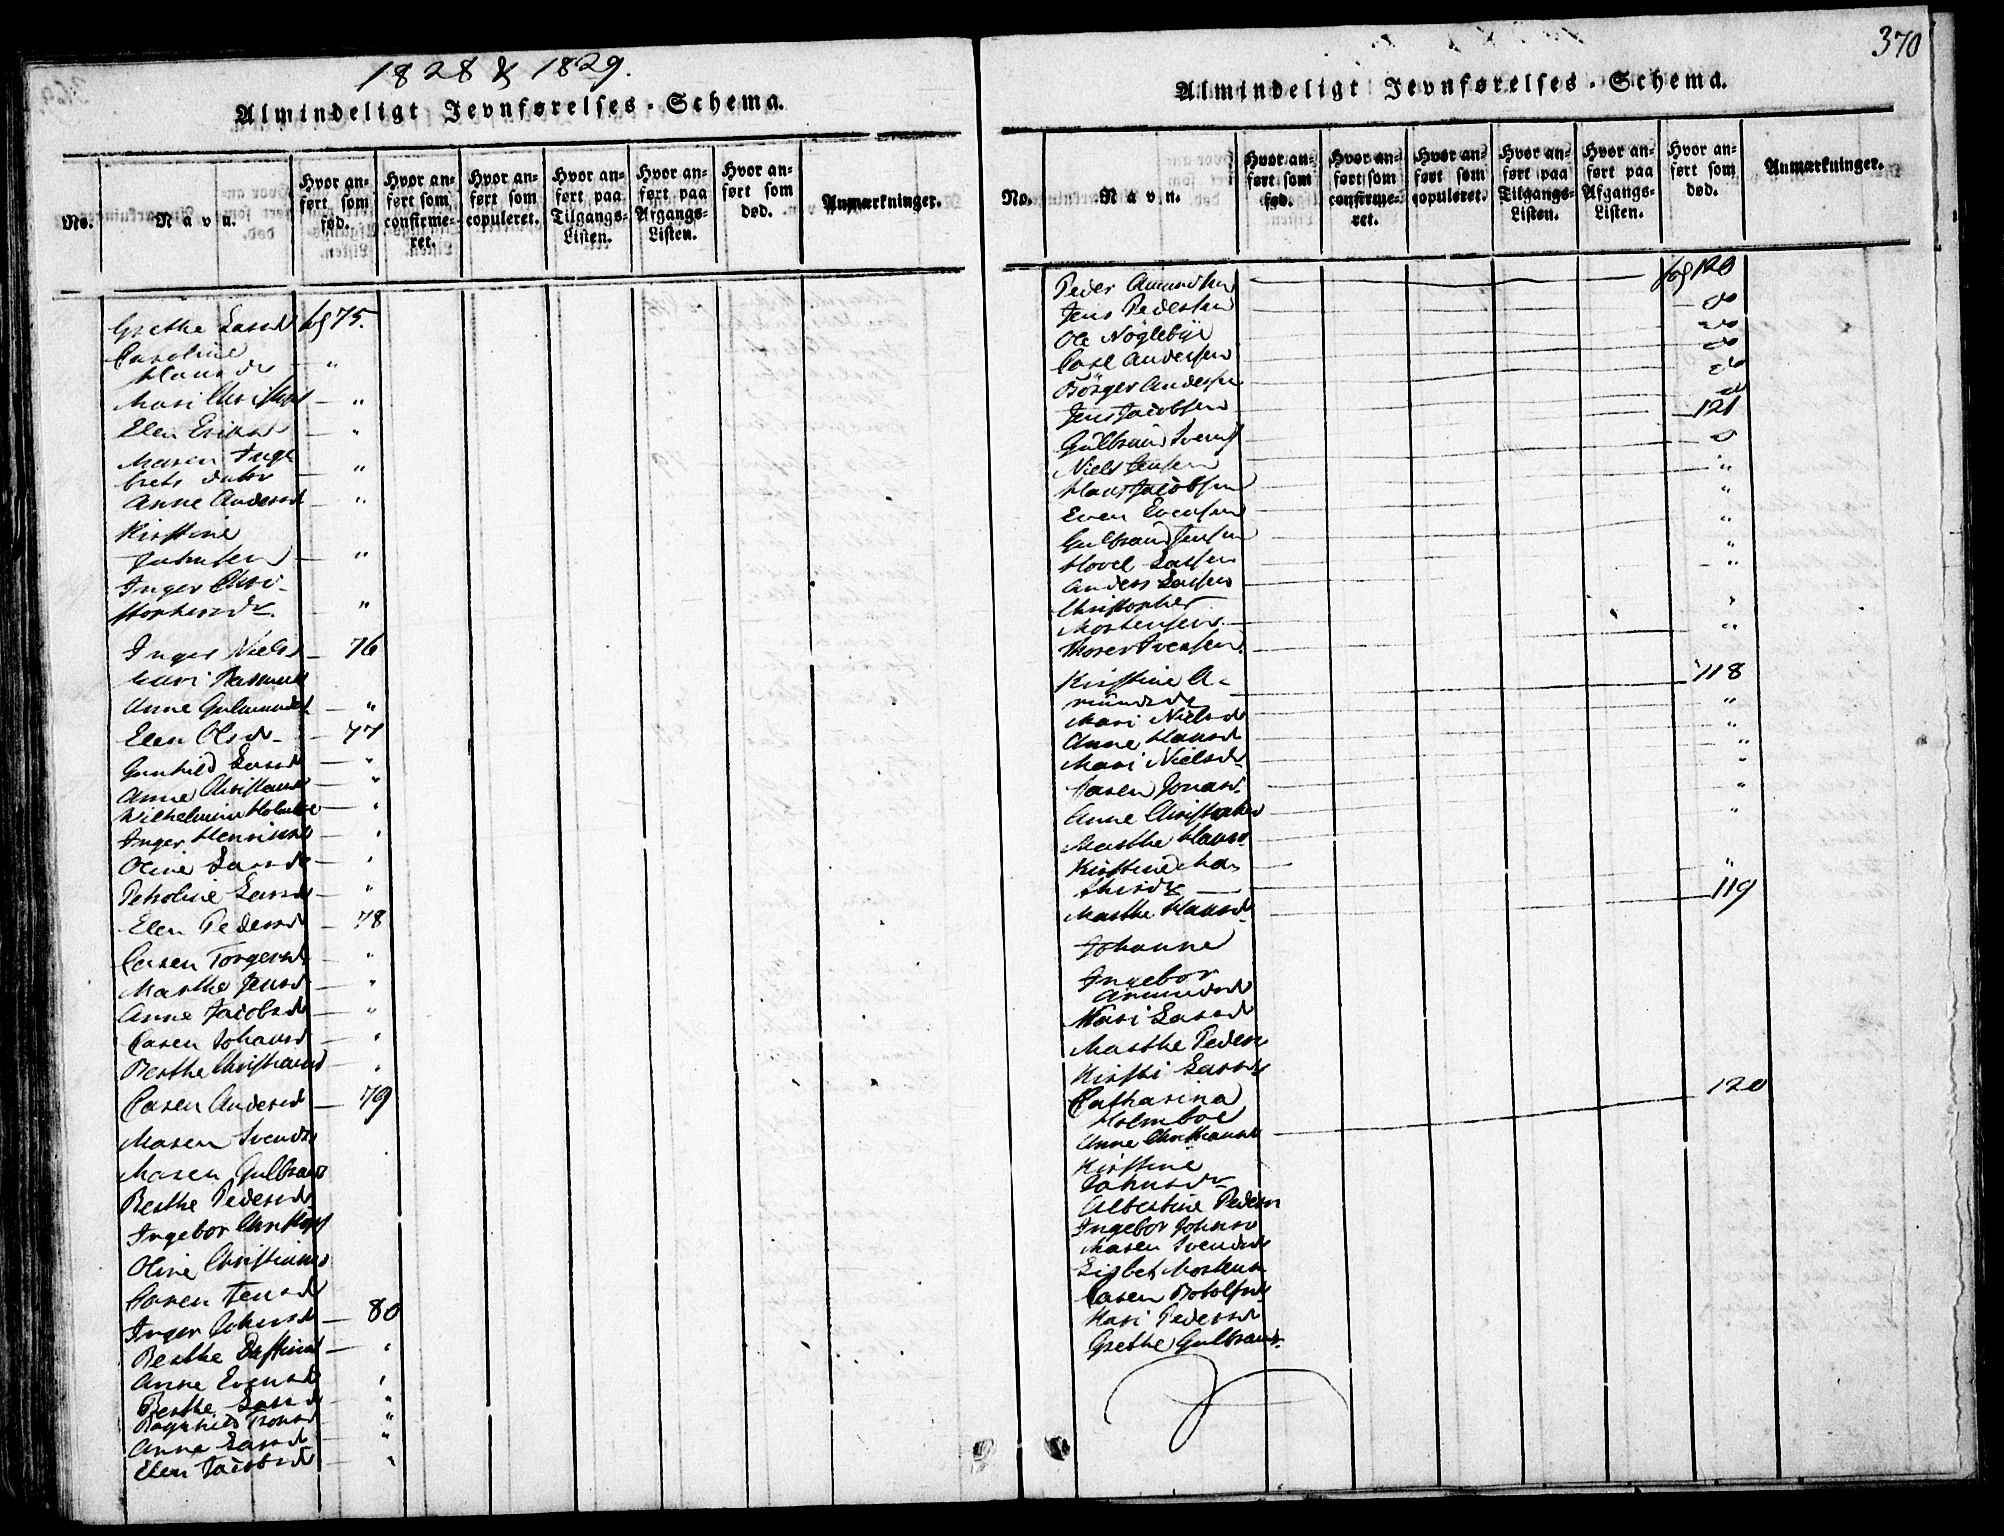 1828 & 1829.
Almindeligt Jevnførelses-Schema.
No.
Navn.
Hvor anført som fød.
Hvor anført som confirmeret.
Hvor anført som copuleret.
Hvor anført paa Tilgangs-Listen.
Hvor anført paa Afgangs-Listen.
Hvor anført som død.
Anmærkninger.
Grethe Larsd fg 75.
Caroline
Hansdr "
Mari Christ
Elen Ericsd "
Maren Inge
brets datter "
Anne Andersd "
Kirstine
Johnsen "
Inger Chri-
stophersdr. "
Inger Nielsd 76
Mari Rasmus
Anne Gulmundsd "
Elen Olsdr 77
Gunhild Larsd "
Anne Christians "
Wilhelmine Holmboe "
Inger Henricsd "
Oline Larsdr "
Petroline Larsd "
Elen Pedersd 78
Caren Torgersd "
Marthe Jensd "
Anne Jacobsd "
Caren Johansd "
Berthe Christiansd "
Caren Andersd 79
Maren Svendsd
Maren Gulbrands
Berthe Pedersd
Ingebor Christ
Oline Christians
Caren Jensd
Inger Johnsd 80
Berthe "
Anne Evensd "
Berthe Larsd "
Ragnhild Tronsd "
Anne Larsd "
Elen Jacobsd "
370
Almindeligt Jevnførelses-Schema.
No.
Navn.
Hvor anført som fød.
Hvor anført som confirmeret.
Hvor anført som copuleret.
Hvor anført paa Tilgangs-Listen.
Hvor anført paa Afgangs-Listen.
Hvor anført som død.
Anmærkninger.
Peder Amundsen fog 120
Jens Pedersen do
Ole Nöglebye do
Carl Andersen do
Börger Andersen do
Jens Jacobsen do
Gulbrand Svends 121
Niels Jensen do
Hans Jacobsen "
Even Evensen "
Gulbrand Jensen "
Hovel Larsen "
Anders Larsen "
Christopher
Mortensen "
Thorer Svensen "
Kirstine A-
mundsdr 118
Mari Nielsdr "
Anne Hansd "
Mari Nielsdr "
Caren Jonasd. "
Anne Christophersd "
Marthe Hansd
Kirstine Ma-
thisdr "
Marthe Hansd 119
Johanne
Ingebor
Amundsd
Kari Larsd
Marthe Peders
Kirsti Larsdr
Catharina
Holmboe
Anne Christiansd 120
Kirstine
Johnsdr
Albertine Peders
Ingebor Johnsd
Maren Svendsd
Lisbet Mortens
Caren Rodolfsd
Kari Pedersd
Grethe Gulbrands.